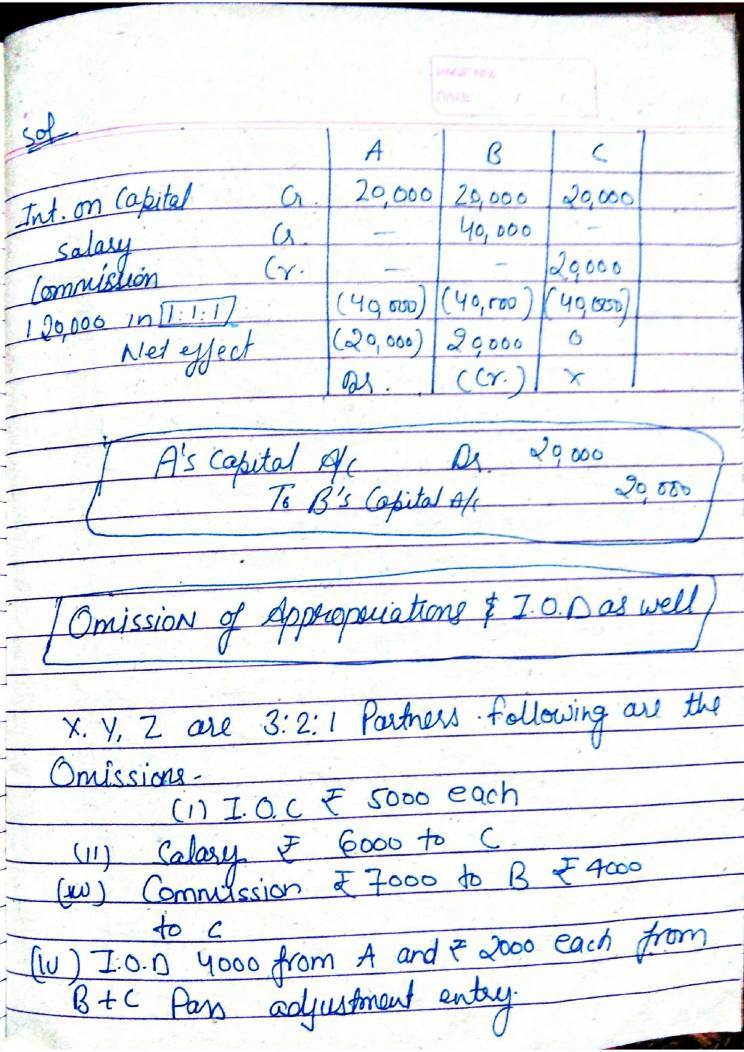 PAGE NO.
DATE / /
Sol
A B C
Int. on Capital Cr. 20,000 20,000 20,000
Salary Cr. - 40,000 -
Commission Cr. - - 20,000
120,000 in 1:1:1 (40,000) (40,000) (40,000)
Net effect (20,000) 20,000 0
Dr. (Cr.) x
A's Capital A/c Dr. 20,000
To B's Capital A/c 20,000
Omission of Appropriations & I.O.D as well
X, Y, Z are 3:2:1 Partners. following are the
Omissions-
(i) I.O.C ₹ 5000 each
(ii) Salary ₹ 6000 to C
Commission ₹ 7000 to B ₹ 4000
to C
(iv) I.O.D 4000 from A and ₹ 2000 each from
B + C Pass adjustment entry.